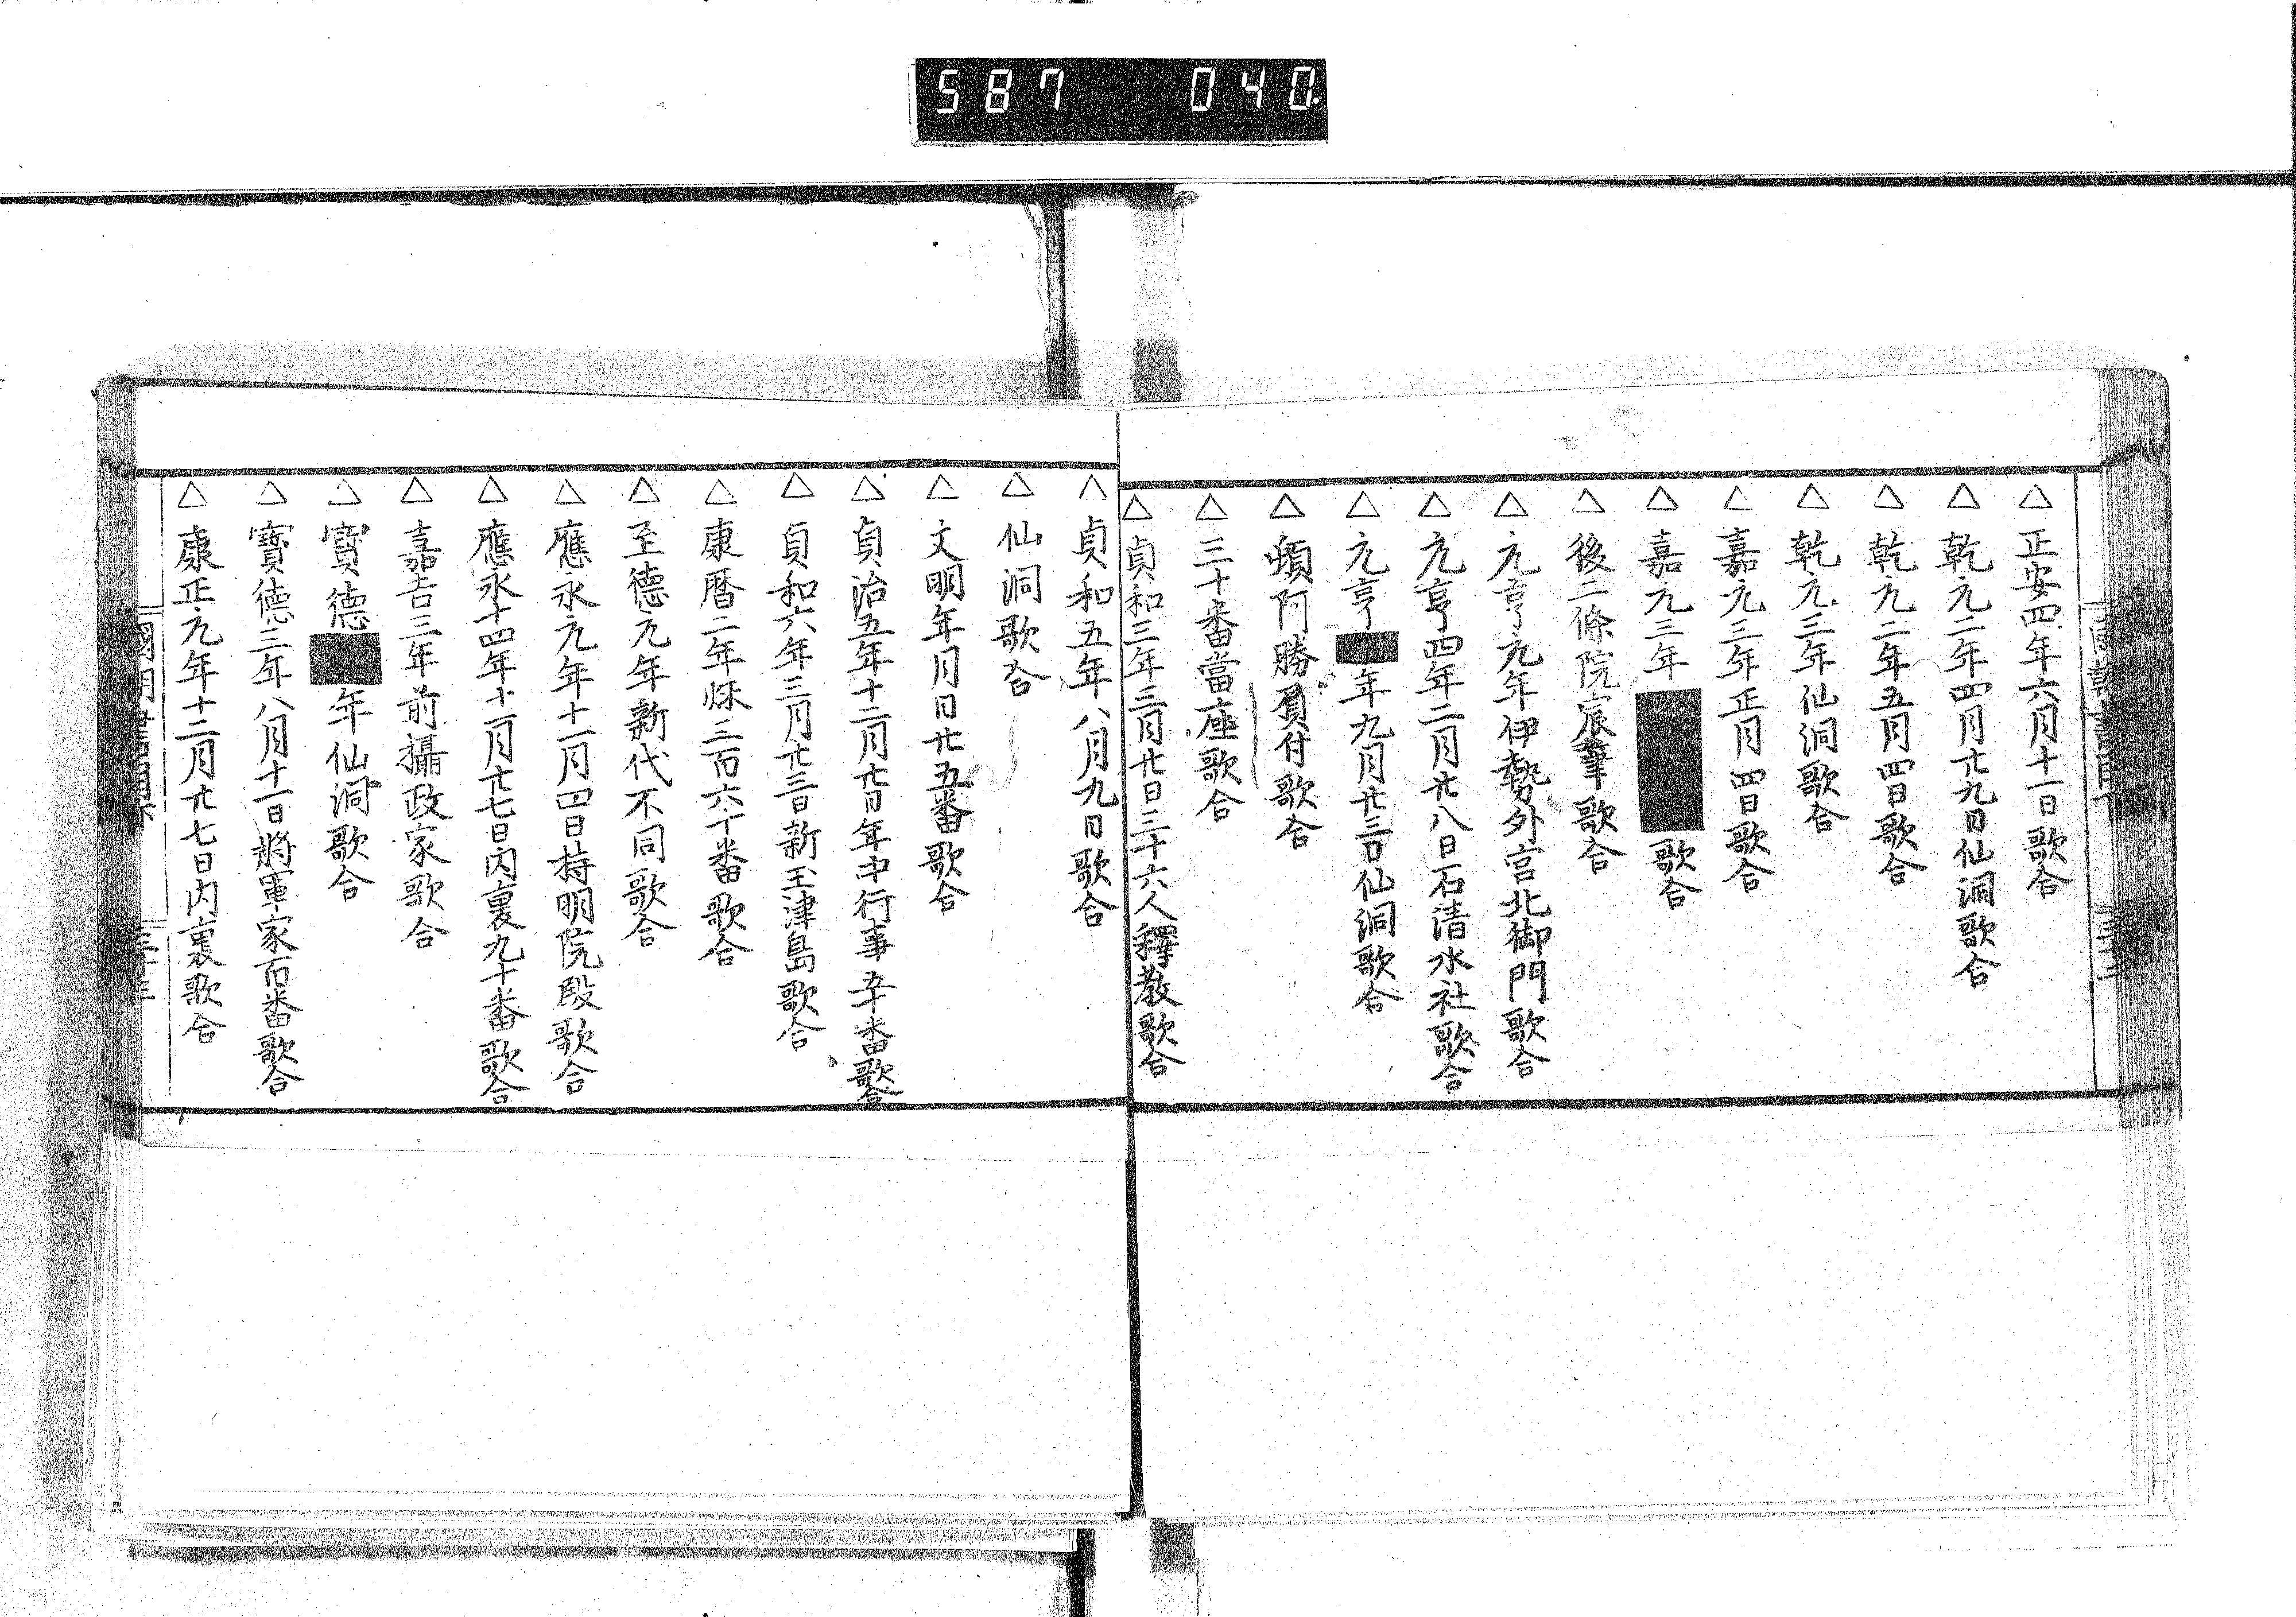 587 040.
△正安四年六月十一日歌合
△乾元二年四月廿九日仙洞歌合
△乾元二年五月四日歌合
△乾元三年仙洞歌合
△嘉元三年正月四日歌合
△嘉元三年 歌合
△後二條院宸筆歌合
△元亨元年伊勢外宮北御門歌合
△元亨四年二月廿八日石清水社歌合
△元亨 年九月廿三日仙洞歌合
△頓阿勝負付歌合
△三十番當座歌合
△貞和三年三月廿日三十六人釋教歌合
△貞和五年八月九日歌合
△仙洞歌合
△文明年月日廿五番歌合
△貞治五年十二月廿日年中行事五十番歌合
△貞和六年三月廿三日新玉津島歌合
△康暦二年 三百六十番歌合
△至德元年新代不同歌合
△應永元年十一月四日持明院殿歌合
△應永十四年十一月廿七日内裏九十番歌合
△嘉吉三年前攝政家歌合
△寶德 年仙洞歌合
△寶德三年八月十一日將軍家百番歌合
△康正元年十二月廿七日内裏歌合